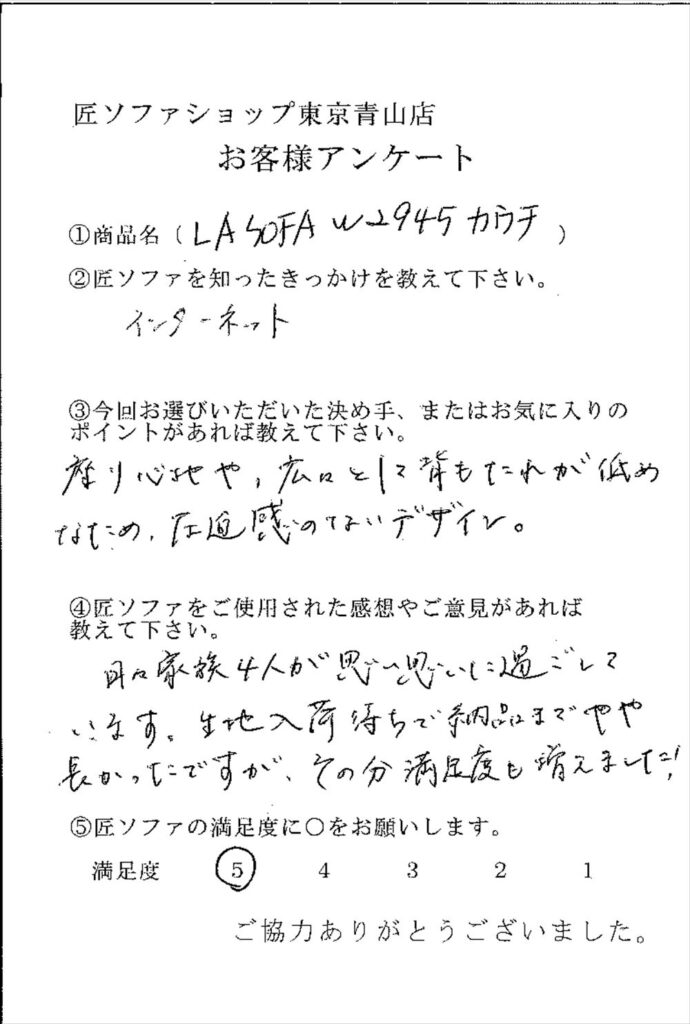 匠ソファショップ東京青山店
お客様アンケート
①商品名（ LA SOFA W2945 カウチ ）
②匠ソファを知ったきっかけを教えて下さい。
インターネット
③今回お選びいただいた決め手、またはお気に入りの
ポイントがあれば教えて下さい。
座り心地や、広々として背もたれが低め
なため、圧迫感のないデザイン。
④匠ソファをご使用された感想やご意見があれば
教えて下さい。
日々家族4人が思い思いに過ごして
います。生地入荷待ちで納品までやや
長かったですが、その分満足度も増えました!
⑤匠ソファの満足度に〇をお願いします。
満足度 5 4 3 2 1
ご協力ありがとうございました。